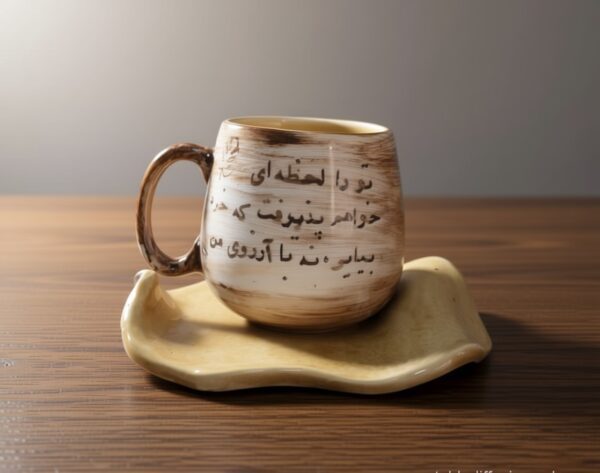 تو را لحظه‌ای
خواهم پذیرفت که خود
بیایی نه با آرزوی من